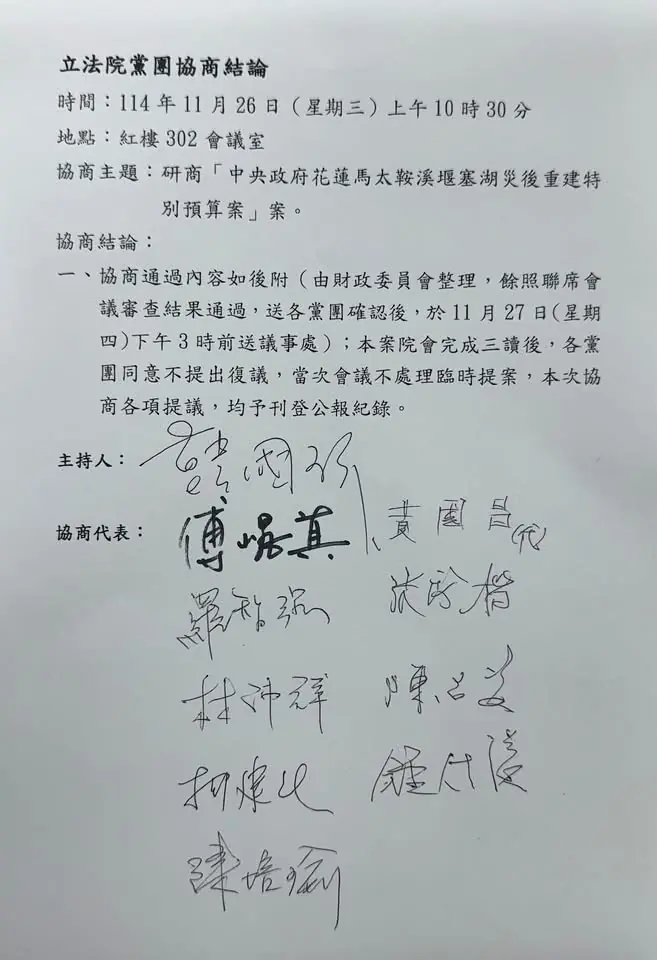 立法院黨團協商結論
時間：114年11月26日（星期三）上午10時30分
地點：紅樓302會議室
協商主題：研商「中央政府花蓮馬太鞍溪堰塞湖災後重建特
別預算案」案。
協商結論：
一、協商通過內容如後附（由財政委員會整理，餘照聯席會
議審查結果通過，送各黨團確認後，於11月27日(星期
四)下午3時前送議事處）；本案院會完成三讀後，各黨
團同意不提出復議，當次會議不處理臨時提案，本次協
商各項提議，均予刊登公報紀錄。
主持人：韓國瑜
協商代表：傅崐萁 黃國昌(代)
羅智強 張啓楷
林沛祥
柯建銘 鍾佳濱
陳培瑜